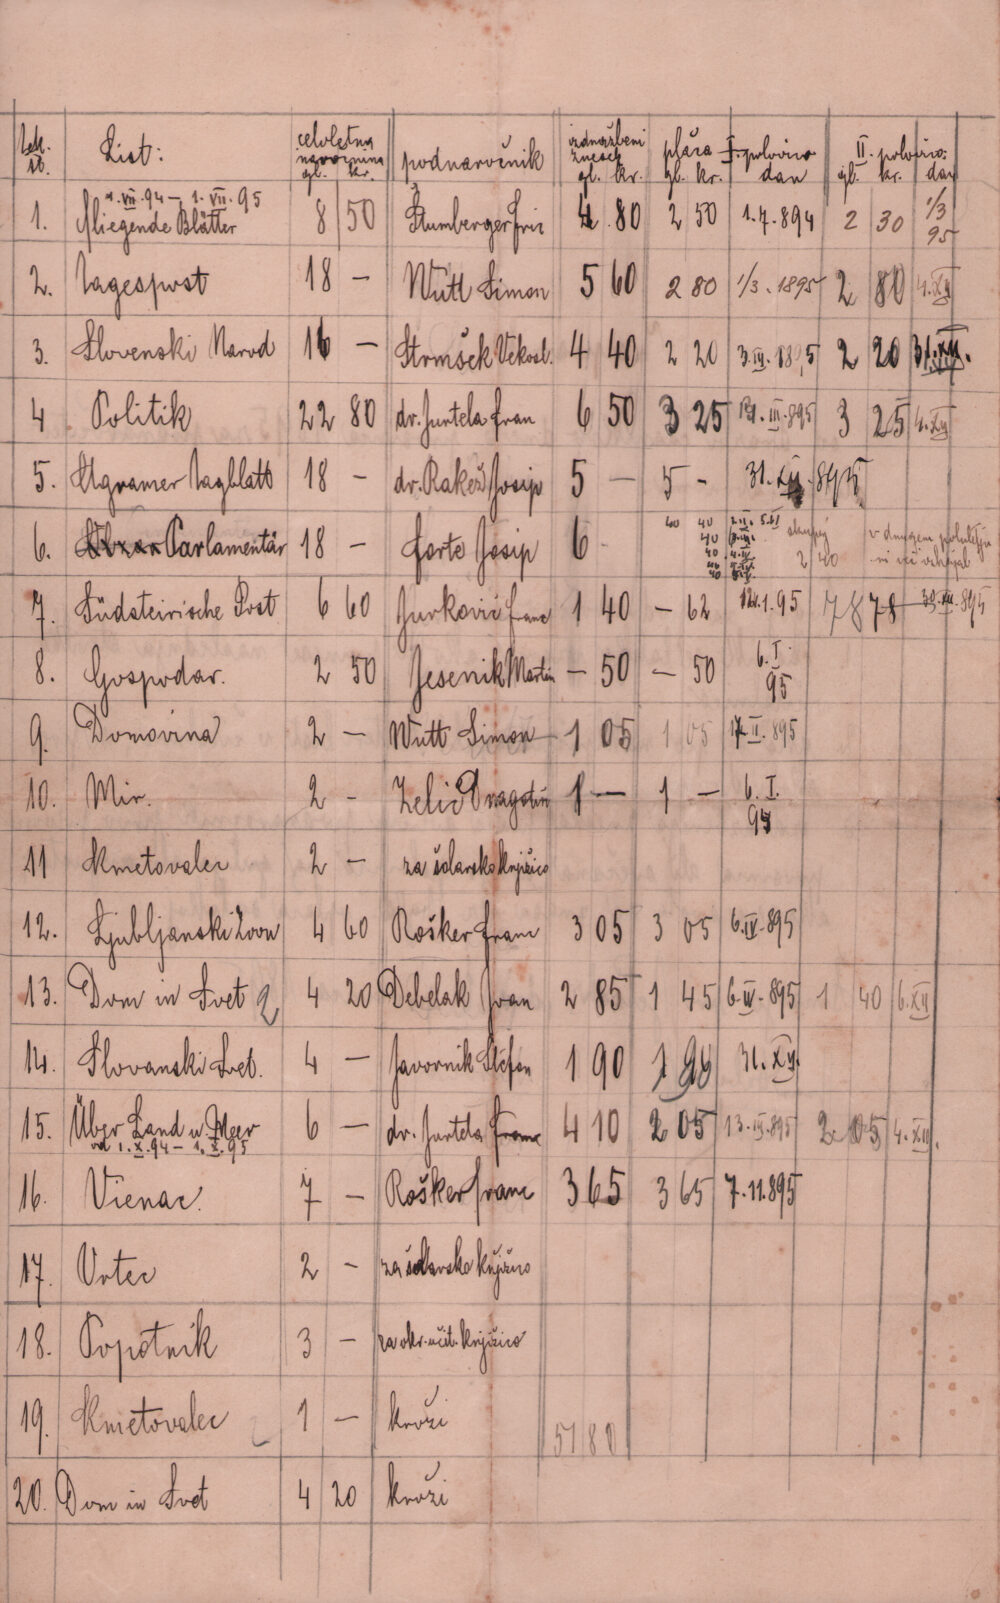 Tek. št. List: celoletna naročnina gl. kr. podnaročnik izdražbeni znesek gl. kr. plača I. polovico gl. kr. dan II. polovico: gl. kr. dan
1. VII. 94 – 1. VII. 95
1. Fliegende Blätter 8 50 Štumberger Fric 4 80 2 50 1.7.894 2 30 1/3 95
2. Tagespost 18 – Wutt Simon 5 60 2 80 1/3. 1895 2 80 4. XII
3. Slovenski Narod 16 – Strmšek Vekosl. 4 40 2 20 2 20 31. XII.
4 Politik 22 80 dr. Jurtela Fran 6 50 3 25 III. 895 3 25 4. XII
5. Agramer Tagblatt 18 – dr. Rakež Josip 5 – 5 - 31. XII. 895
6. Parlamentär 18 – Forte Josip 6 - 40 40 skupaj 2 40 v drugem poluletju ni več izhajal
7. Südsteirische Post 6 60 Jurković Franc 1 40 – 62 1.95 78 78 30. XII. 895
8. Gospodar. 2 50 Jesenik Martin – 50 – 50 6. I. 95
9. Domovina 2 – Wutt Simon 1 05 1 05 17 II. 895
10. Mir. 2 - Zelić Dragotin 1 – 1 – 6. I. 95
11 Kmetovalec 2 – za šolarsko knjižico
12. Ljubljanski Zvon 4 60 Rošker Franc 3 05 3 05 6. IV. 895
13. Dom in Svet 2 4 20 Debelak Ivan 2 85 1 45 6. IV. 895 1 40 6. XII
14. Slovanski Svet. 4 – Javornik Štefan 1 90 1 90 31. XII.
15. Über Land u. Meer 6 – dr. Jurtela Franc 4 10 2 05 13. 895 2 05 4. XII.
od 1. X. 94 – 1. X. 95
16. Vienac. 7 – Rošker Franc 3 65 3 65 7. 11. 895
17. Vrtec 2 – za šolarsko knjižico
18. Popotnik 3 – za okr. učit. knjižico
19. Kmetovalec 1 – kroži 51 80
20. Dom in Svet 4 20 kroži